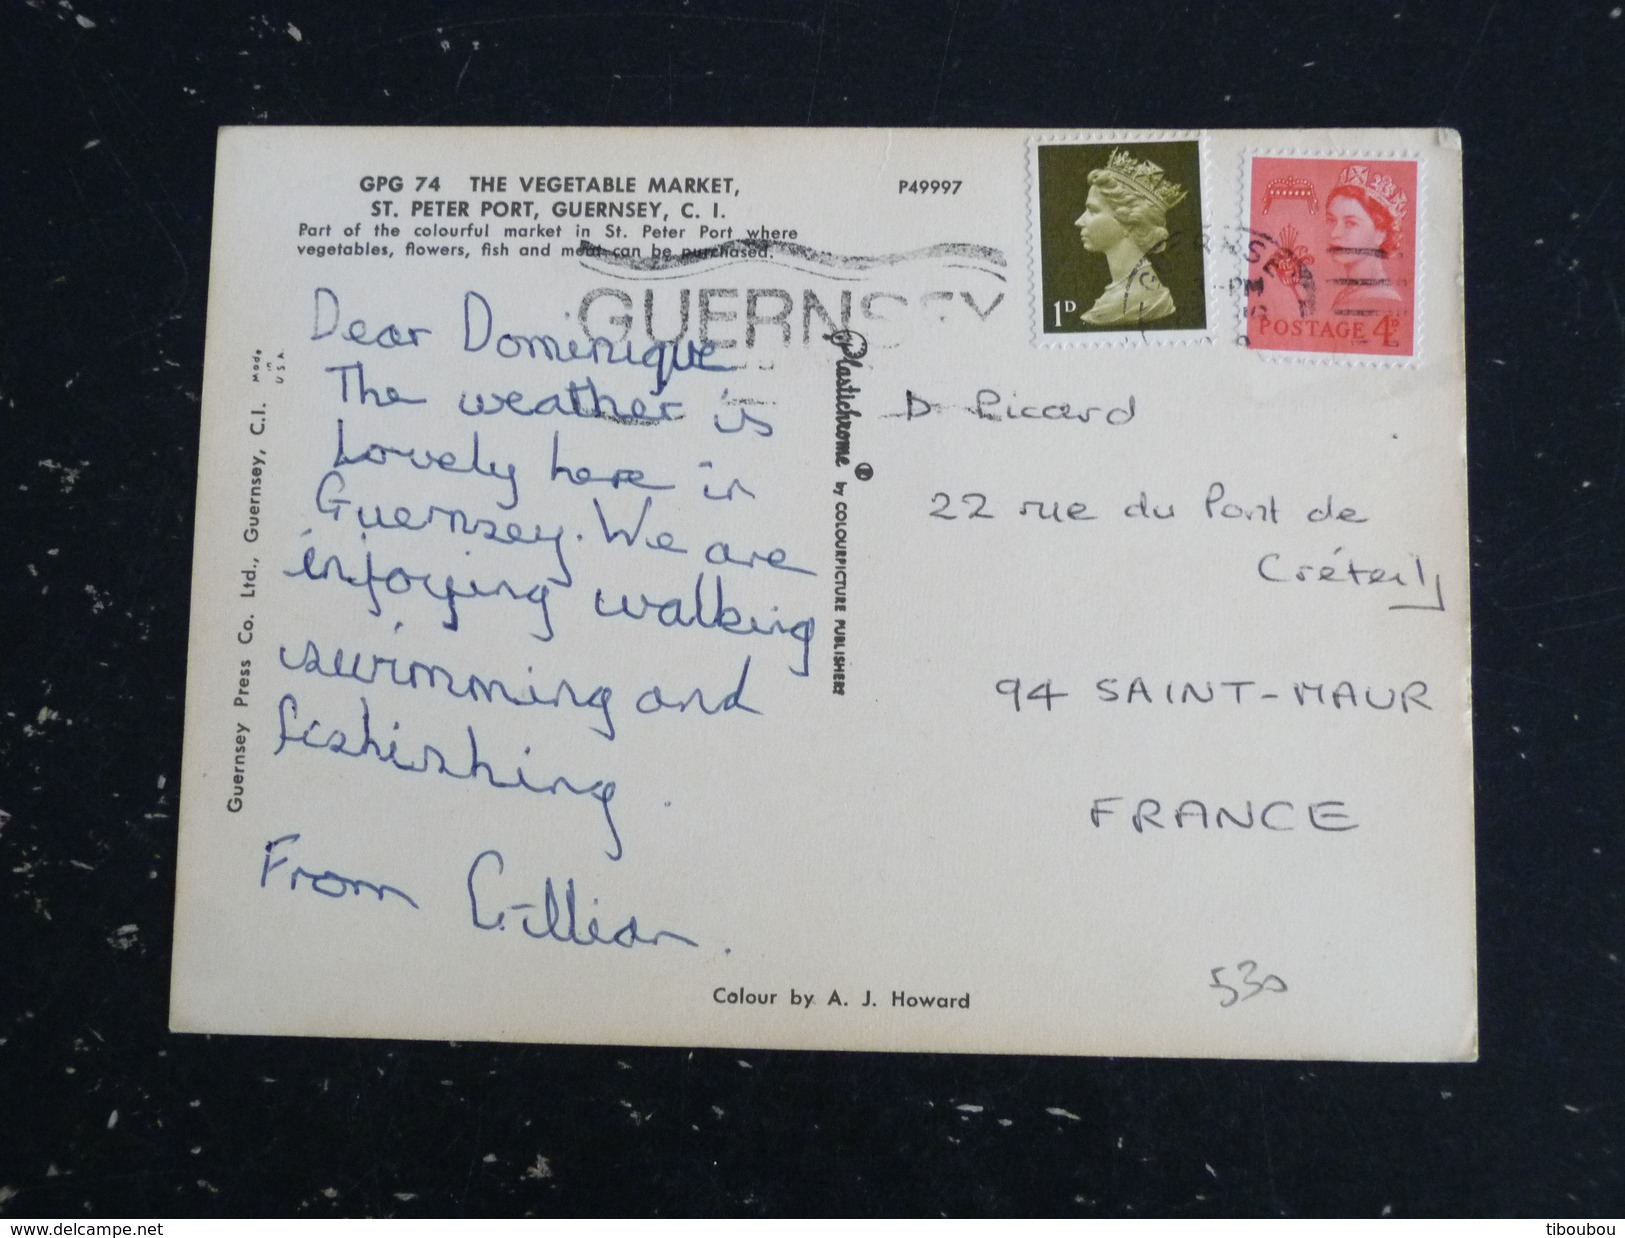 GPG 74 THE VEGETABLE MARKET,
ST. PETER PORT, GUERNSEY, C. I.
Part of the colourful market in St. Peter Port where
vegetables, flowers, fish and meat can be purchased.
P49997
1D
POSTAGE 4D
GUERNSEY
PM
Dear Dominique
The weather is
Lovely here in
Guernsey. We are
injoying walking
swimming and
fishishing.
From Gillian.
Guernsey Press Co. Ltd., Guernsey, C.I.
Made
in
U.S.A.
Plastichrome ® by COLOURPICTURE PUBLISHERS
D Picard
22 rue du Pont de
Créteil
94 SAINT-MAUR
FRANCE
530
Colour by A. J. Howard
www.delcampe.net
tiboubou